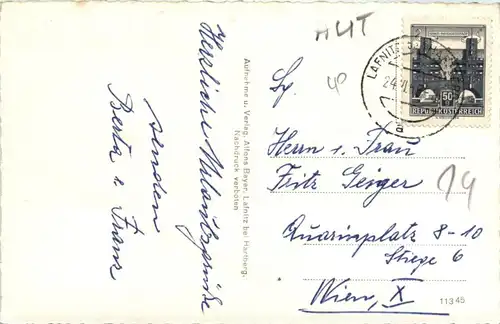 Herzliche Urlaubsgrüße
senden
Berta u. Franz
Aufnahme u. Verlag: Alfons Bayer, Lafnitz bei Hartberg.
Nachdruck verboten
AUT
40
LAFNITZ
24.VI.
50
REPUBLIK ÖSTERREICH
Fg.
Herrn u. Frau
Fritz Geiger
Quarinplatz 8-10
Stiege 6
Wien, X
11345